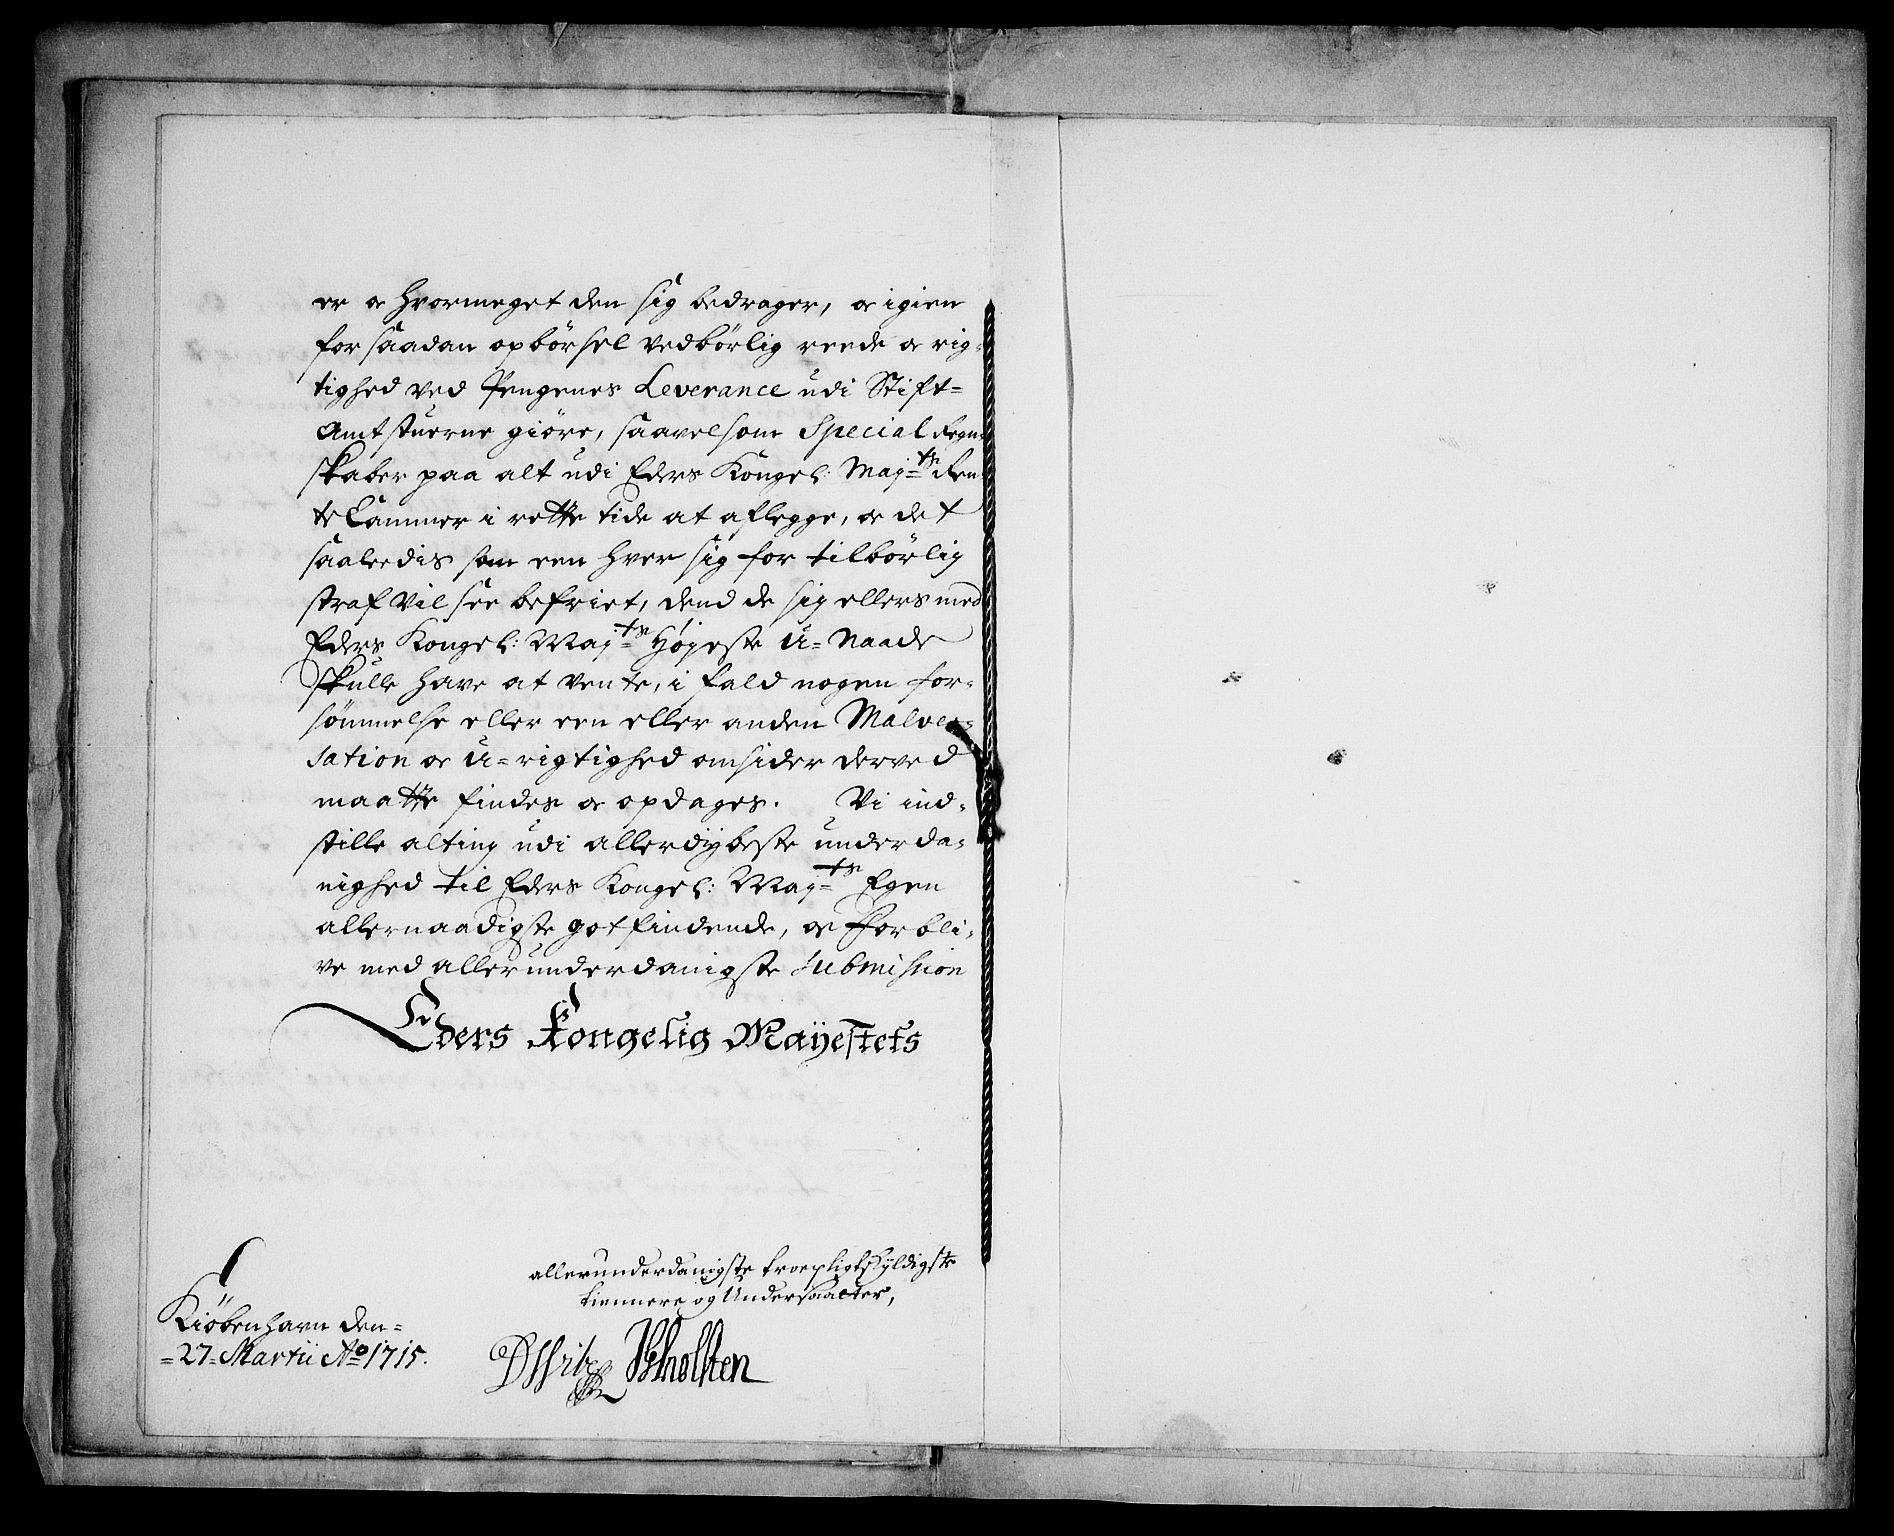 er oc hvormeget den sig bedrager, oc igien
for saadan opbörsel vedbörlig reede oc rig-
tighed ved Pengenes Leverance udi Stift-
Amtstuerne giöre, saavelsom Special Regn-
skaber paa alt udi Eders Kongel: Maj:ts Ren-
te Cammer i rette tide at aflegge, oc det
saaleedis som een hver sig for tilbörlig
straf vil see befriet, dend de sig ellers med
Eders Kongel: Maj:ts Høyeste U-Naade
skulle have at vente, i fald nogen for-
sömmelse eller een eller anden Malver-
sation oc U-rigtighed omsider derved
maatte findes oc opdages. Vi ind-
stille alting udi allerdybeste underda-
nighed til Eders Kongel: Maj:ts Egen
allernaadigste gotfindende, oc forbli-
ve med allerunderdanigste submission
Eders Kongelig Mayestets
allerunderdanigste troepligtskyldigste
tiennere og Undersaatter,
Kiöbenhavn den-
=27= Martii Ao 1715.
Holsten